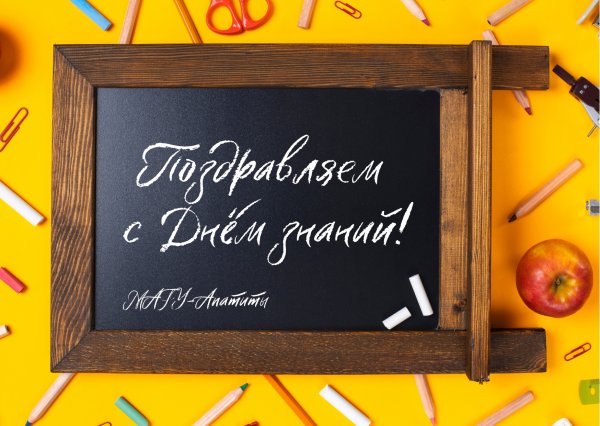 Поздравляем
с Днём знаний!
МАГУ-Апатиты